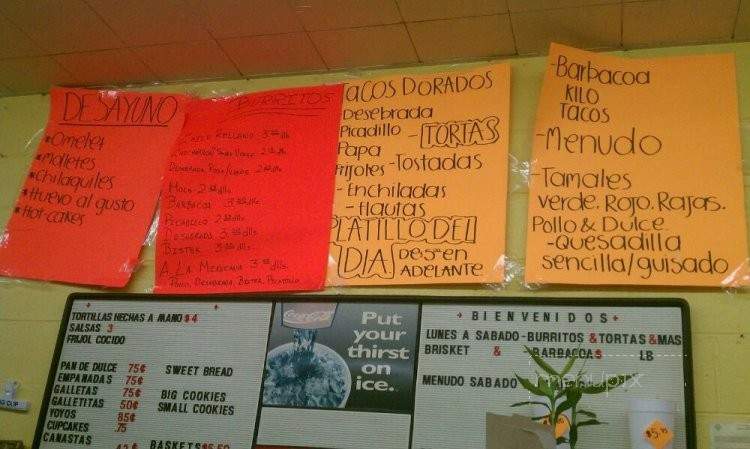 DESAYUNO
*Omelet
*Molletes
*Chilaquiles
*Huevo al gusto
*Hot-cakes
BURRITOS
Chile Relleno 3.00 dlls.
Moco 2
Barbacoa 3
Picadillo 2
Deshebrada 3
Bistek 3
A La Mexicana 3 dlls.
TACOS DORADOS
Desebrada
Picadillo
Papa
Frijoles
-TORTAS
-Tostadas
-Enchiladas
-flautas
PLATILLO DEL
DIA DE 5 EN
ADELANTE
-Barbacoa
KILO
TACOS
-Menudo
-Tamales
verde, Rojo, Rajas.
Pollo & Dulce
-Quesadilla
sencilla/guisado
TORTILLAS HECHAS A MANO $4
SALSAS 3
FRIJOL COCIDO
PAN DE DULCE 75¢ SWEET BREAD
EMPANADAS 75¢
GALLETAS 75¢ BIG COOKIES
GALLETITAS 50¢ SMALL COOKIES
YOYOS 85¢
CUPCAKES .75
CANASTAS BASKETS
Coca-Cola
Put
your
thirst
on
ice.
+ BIENVENIDOS +
LUNES A SABADO-BURRITOS &TORTAS &MAS
BRISKET & BARBACOAS LB
MENUDO SABADO
menupix